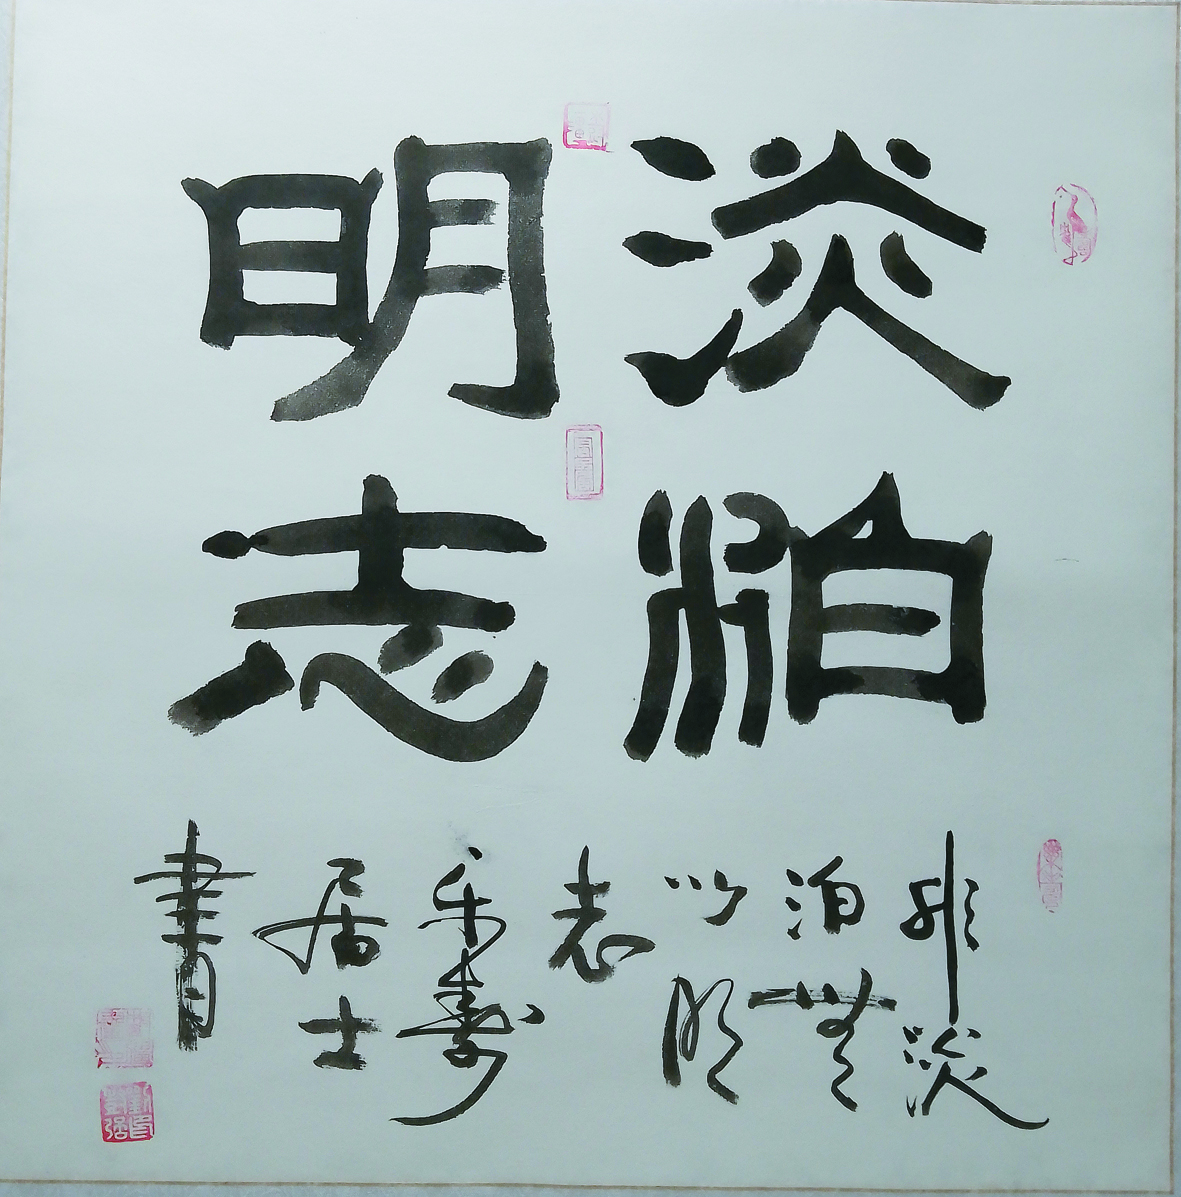 淡泊
明志
非淡
泊無
以明
志
乐寿
居士
書